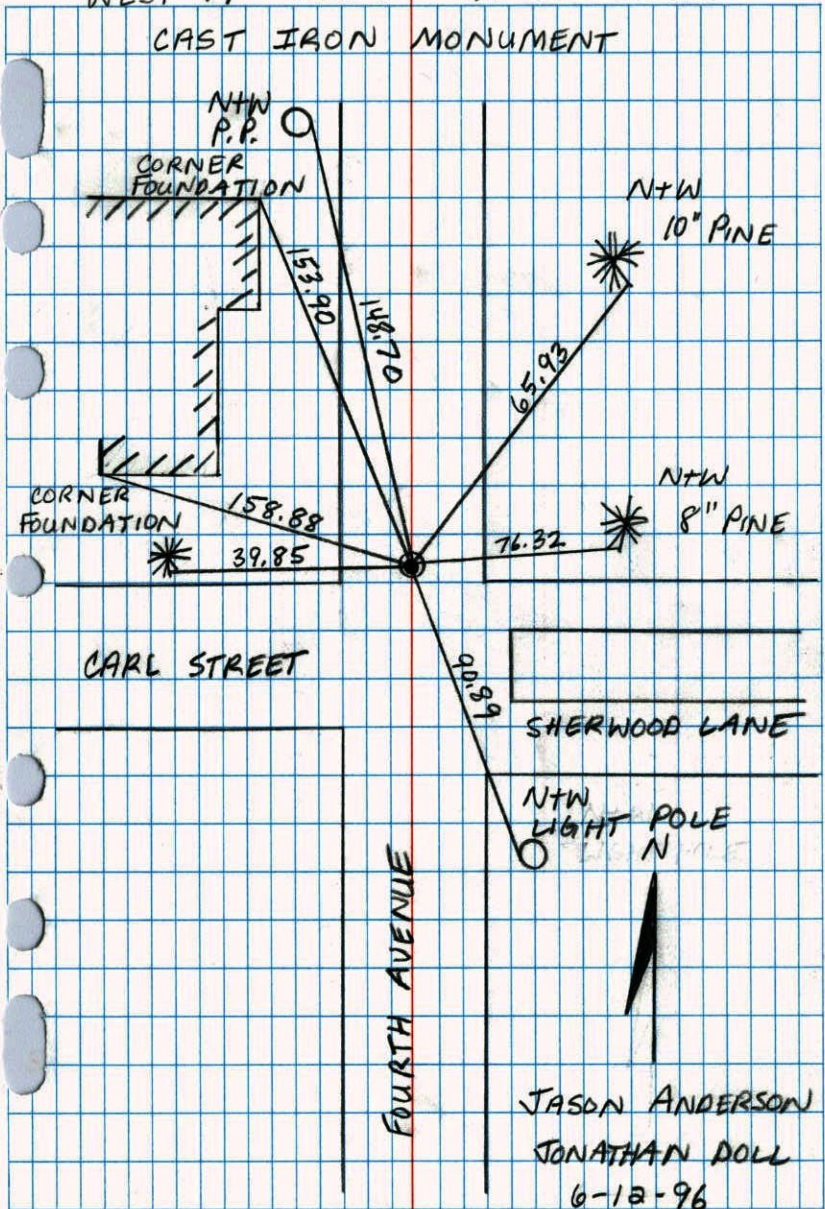 CAST IRON MONUMENT
N+W
P.P.
CORNER
FOUNDATION
N+W
10" PINE
153.90
148.70
65.93
N+W
8" PINE
CORNER
FOUNDATION
158.88
39.85
76.32
CARL STREET
90.89
SHERWOOD LANE
N+W
LIGHT POLE
N
FOURTH AVENUE
JASON ANDERSON
JONATHAN DOLL
6-12-96